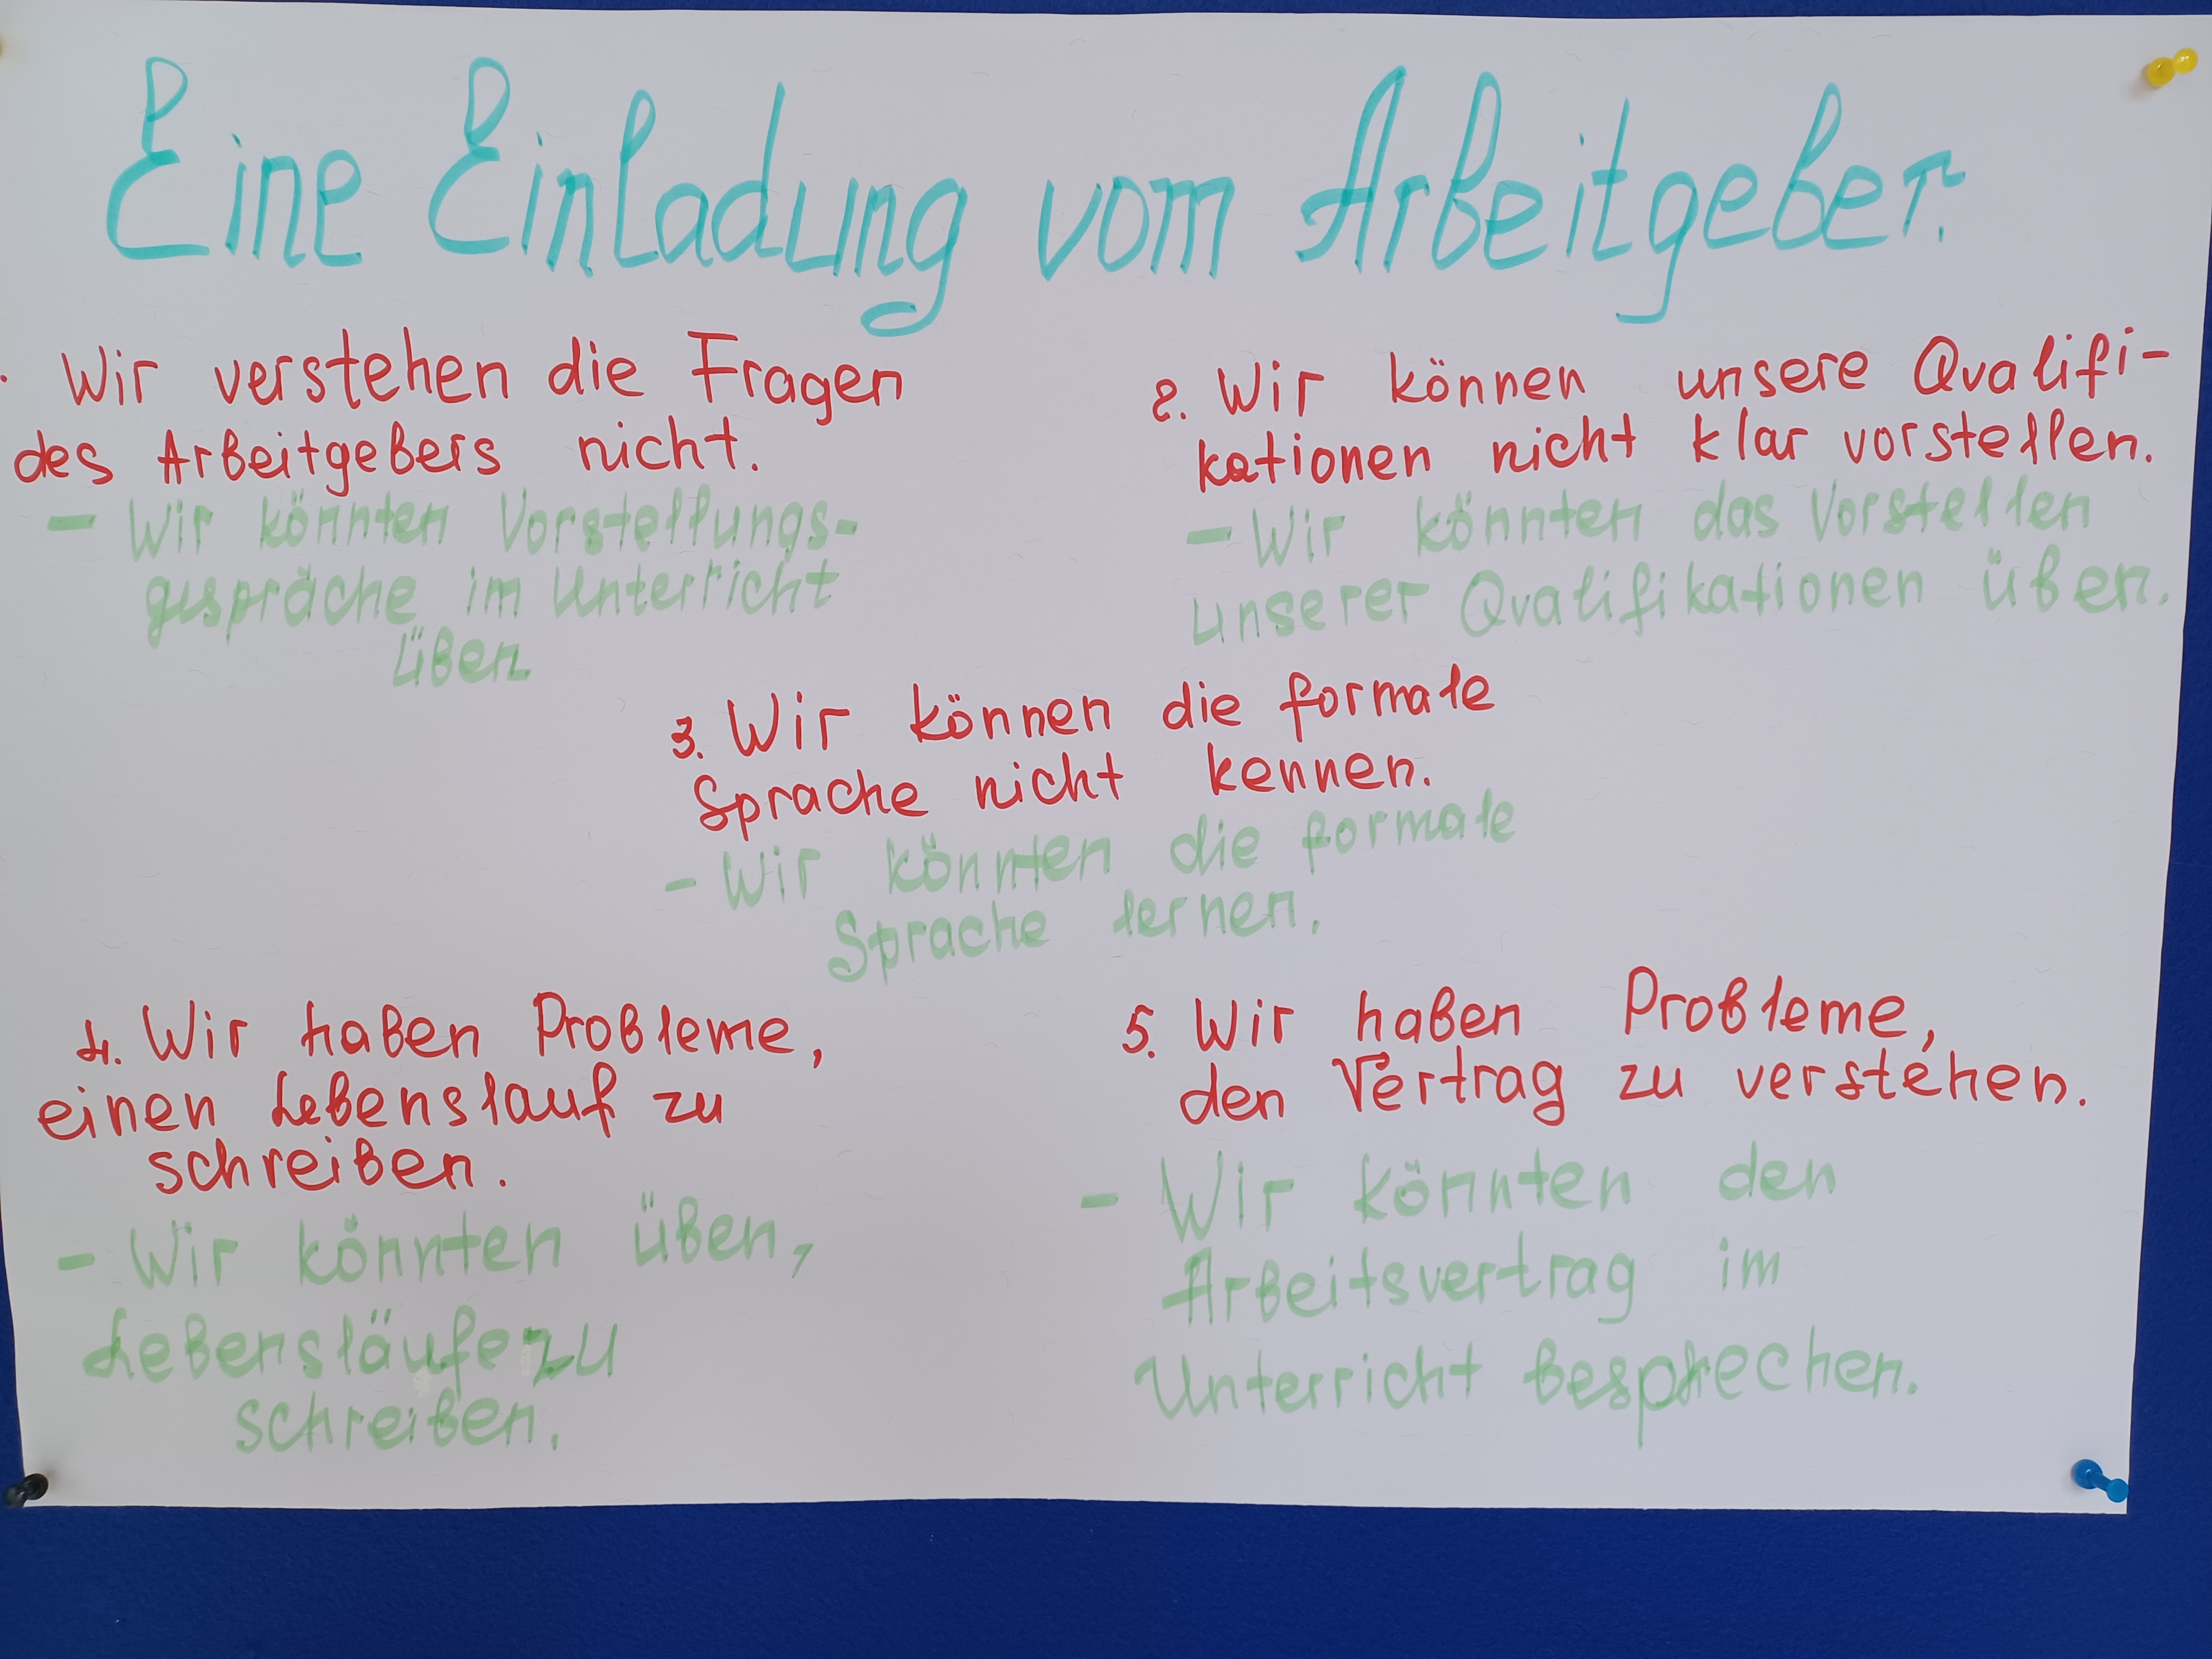 Eine Einladung vom Arbeitgeber.
. Wir verstehen die Fragen
des Arbeitgebers nicht.
- Wir könnten Vorstellungs-
gespräche im Unterricht
üben
2. Wir können unsere Qualifi-
kationen nicht klar vorstellen.
- Wir könnten das Vorstellen
unserer Qualifikationen üben.
3. Wir können die formale
Sprache nicht kennen.
- Wir könnten die formale
Sprache lernen.
4. Wir haben Probleme,
einen Lebenslauf zu
schreiben.
- Wir könnten üben,
Lebensläufe zu
schreiben.
5. Wir haben Probleme,
den Vertrag zu verstehen.
- Wir könnten den
Arbeitsvertrag im
Unterricht besprechen.